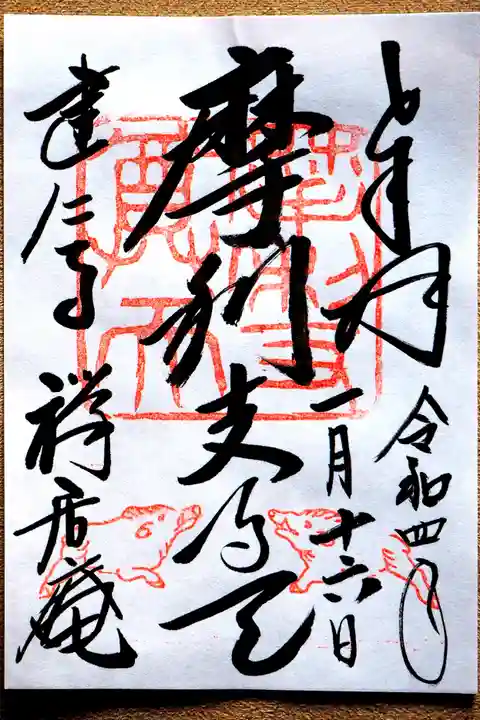 奉拝
令和四年
一月十六日
摩利支尊天
建仁寺 禅居庵